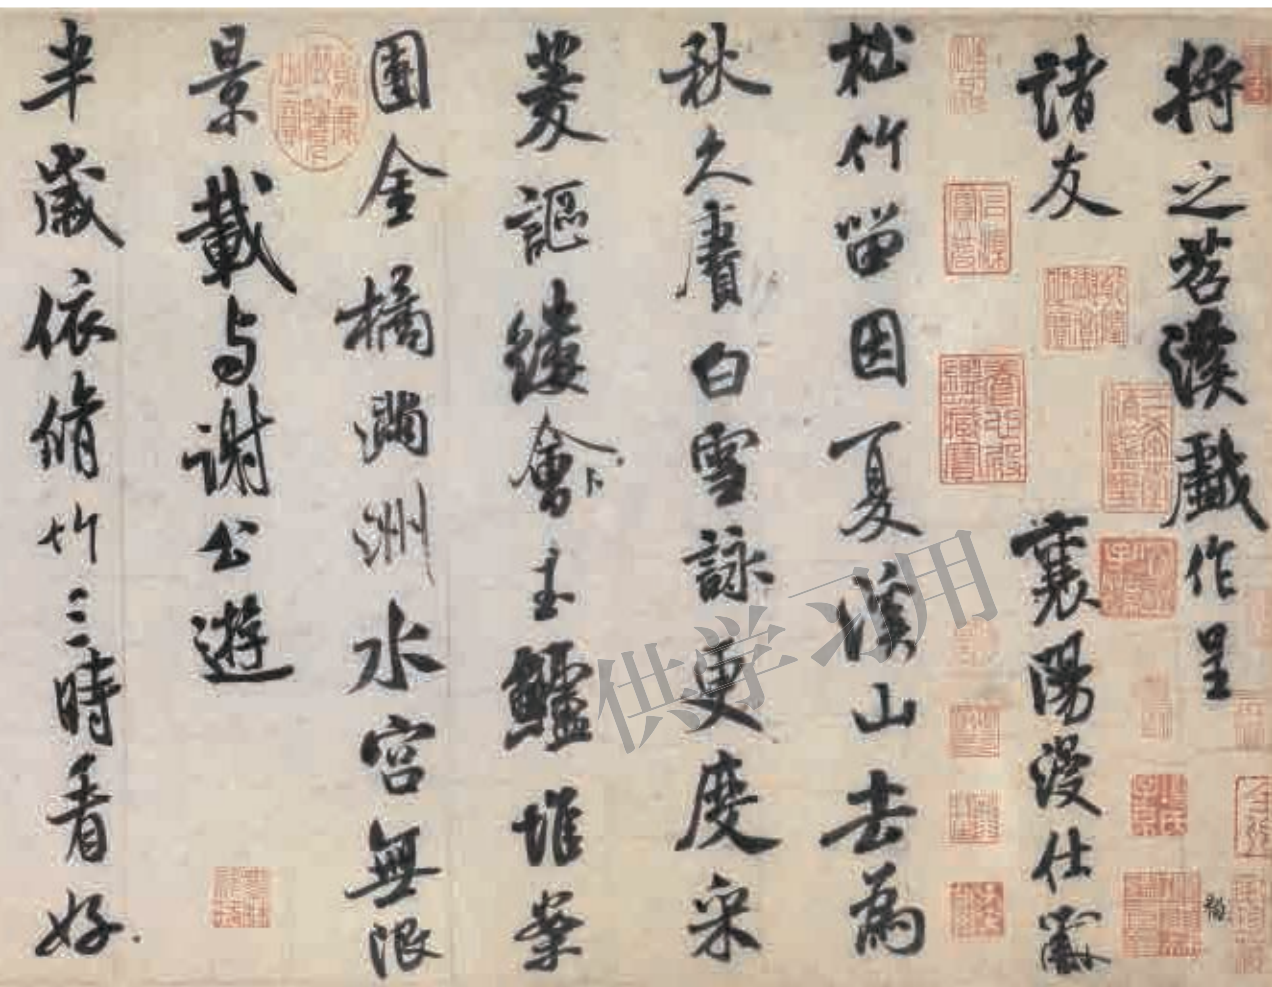 將之苕溪戲作呈
諸友
襄陽漫仕黻
松竹留因夏溪山去為
秋久賡白雪詠更度采
菱謳縷會玉鱸堆案
團金橘滿洲水宮無限
景載与謝公遊
半歲依脩竹三時看好
供学习用